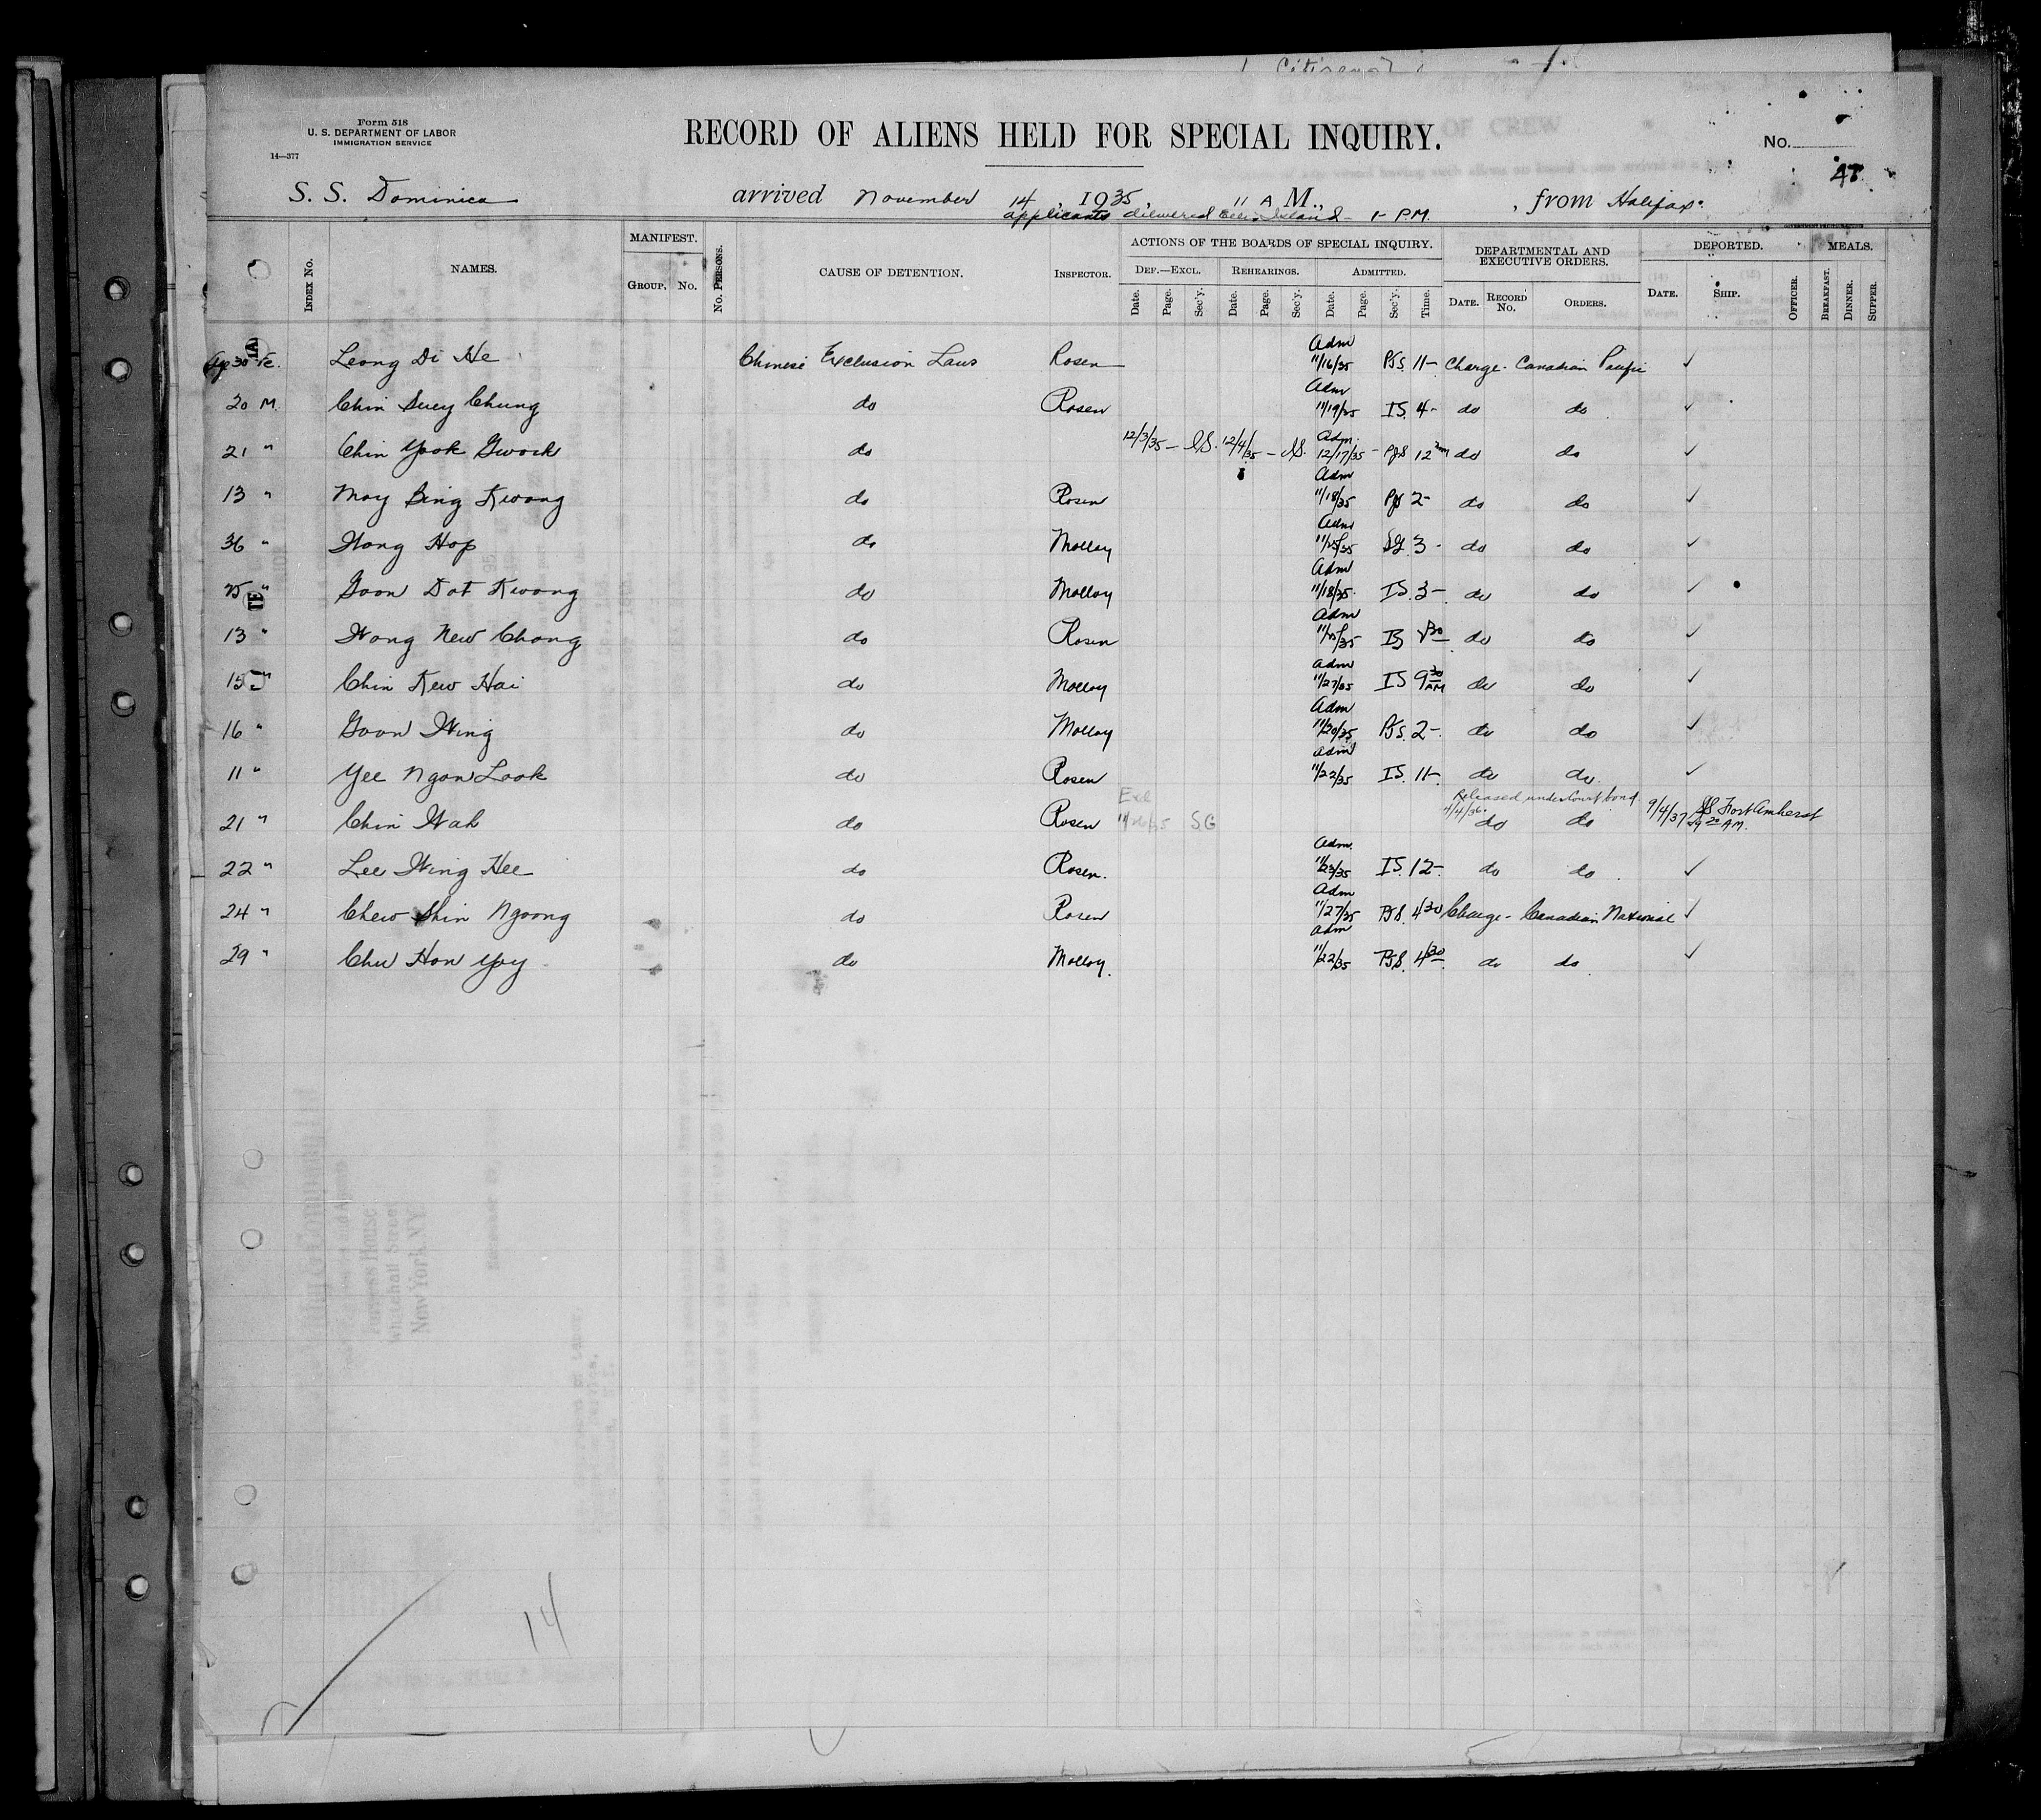 Citizens
Form 518
U. S. DEPARTMENT OF LABOR
IMMIGRATION SERVICE
14—377
RECORD OF ALIENS HELD FOR SPECIAL INQUIRY.
No.
S. S. Dominica arrived November 14, 1935, 11 A M., from Halifax.
applicants delivered Ellis Island - 1- P.M.
INDEX No. NAMES. MANIFEST. GROUP. No. No. PERSONS. CAUSE OF DETENTION. INSPECTOR. ACTIONS OF THE BOARDS OF SPECIAL INQUIRY. DEF.—EXCL. Date. Page. Sec'y. REHEARINGS. Date. Page. Sec'y. ADMITTED. Date. Page. Sec'y. Time. DEPARTMENTAL AND EXECUTIVE ORDERS. DATE. RECORD No. ORDERS. DEPORTED. DATE. SHIP. OFFICER. MEALS. BREAKFAST. DINNER. SUPPER.
Age 30 Fe. Leong Di He Chinese Exclusion Laws Rosen Adm 11/16/35 PJS. 11- Charge - Canadian Pacific ✓
20 M. Chin Suey Chung do Rosen Adm 11/19/35 IS. 4- do do ✓
21 " Chin Yook Gwock do 12/3/35 - IS. 12/4/35 - IS. Adm. 12/17/35 - PJS 12 do do ✓
13 " Moy Bing Kwong do Rosen Adm 11/18/35 PJS 2- do do ✓
36 " Wong Hop do Molloy Adm SG 3- do do ✓
25 " Goon Dot Kwong do Molloy Adm 11/18/35 IS. 3- do do ✓
13 " Wong New Chong do Rosen Adm IS do do ✓
15 " Chin Kew Hai do Molloy Adm 11/27/35 IS 9 30 AM do do ✓
16 " Goon Wing do Molloy Adm 11/20/35 PJS. 2- do do ✓
11 " Yee Ngon Look do Rosen Adm 11/22/35 IS. 11- do do ✓
21 " Chin Wah do Rosen Exc 11/26/35 SG Released under Court bond 4/4/36. do do 9/4/37 SS Fort Amherst 9 20 AM.
22 " Lee Wing Hee do Rosen. Adm. 11/23/35 IS. 12- do do ✓
24 " Chew Shin Ngoong do Rosen Adm 11/27/35 PJS. 4 30 Charge - Canadian National ✓
29 " Chu Hon Yoy do Molloy. Adm 11/22/35 PJS. 4 30 do do ✓
14